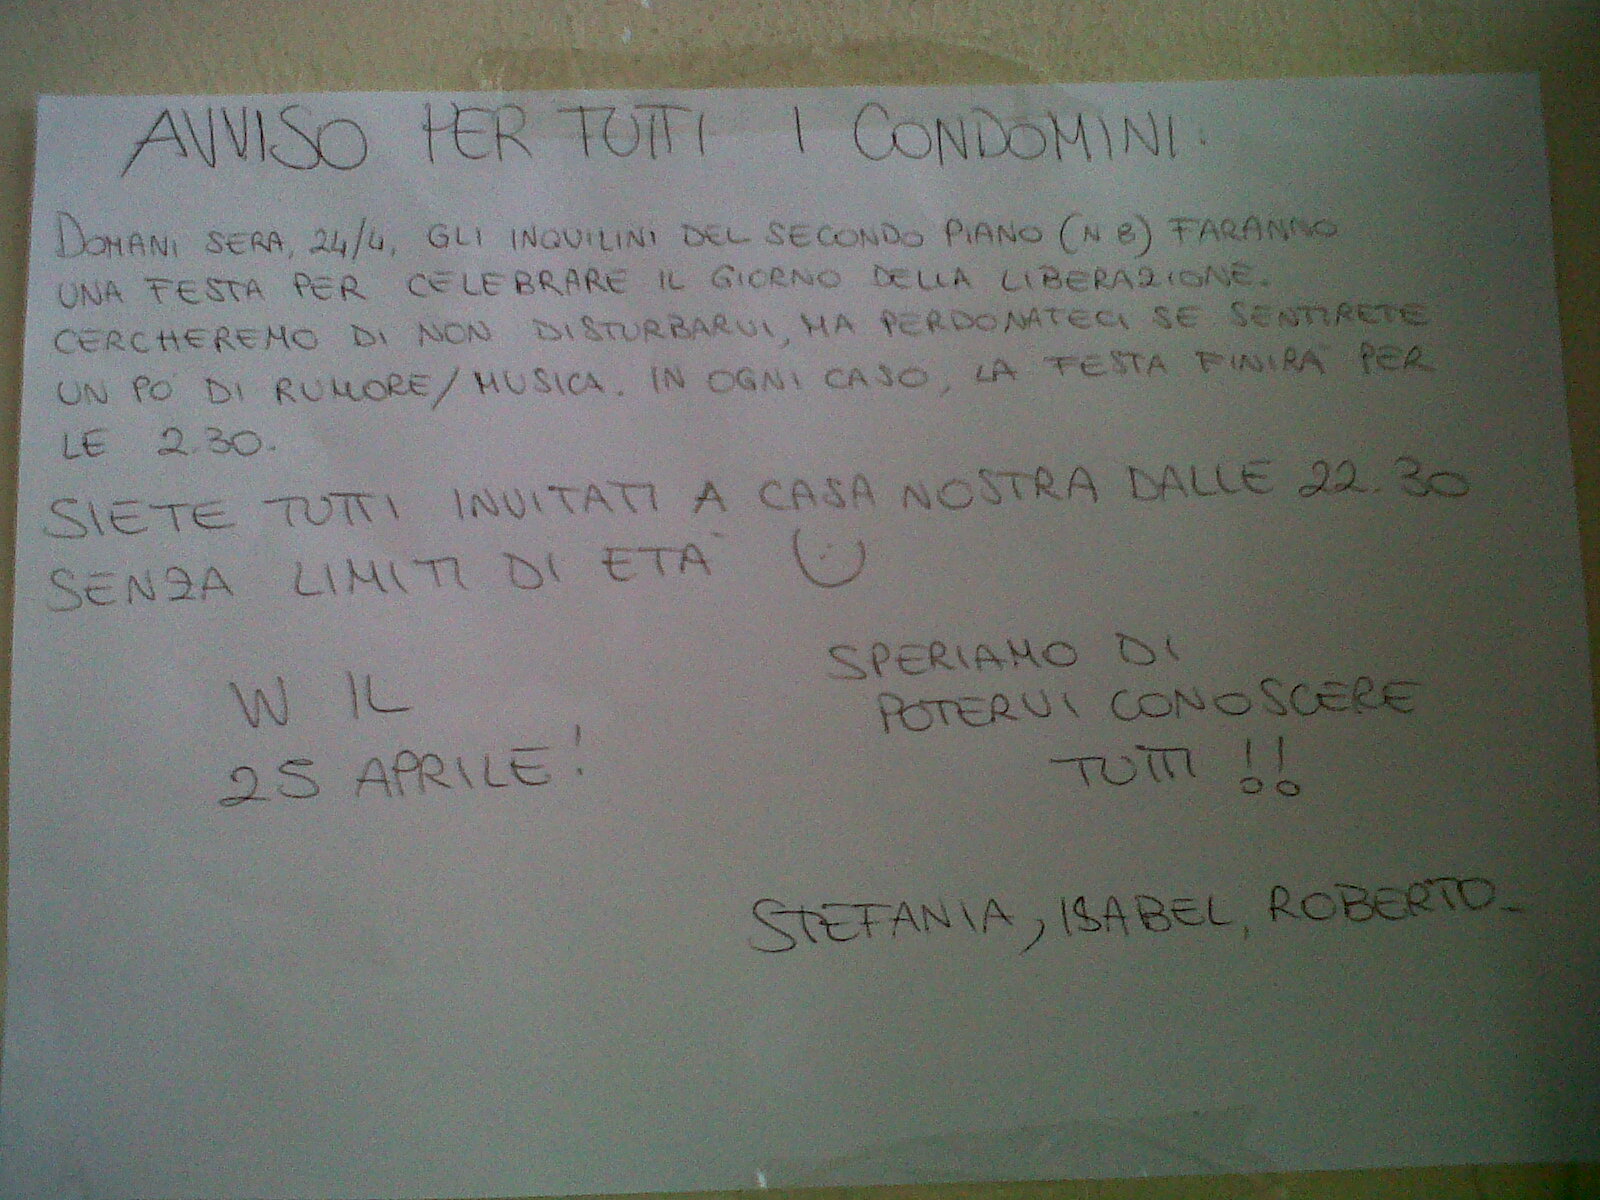 AVVISO PER TUTTI I CONDOMINI.
DOMANI SERA, 24/4, GLI INQUILINI DEL SECONDO PIANO (N 8) FARANNO
UNA FESTA PER CELEBRARE IL GIORNO DELLA LIBERAZIONE.
CERCHEREMO DI NON DISTURBARVI, MA PERDONATECI SE SENTIRETE
UN PO' DI RUMORE/MUSICA. IN OGNI CASO, LA FESTA FINIRA' PER
LE 2.30.
SIETE TUTTI INVITATI A CASA NOSTRA DALLE 22.30
SENZA LIMITI DI ETA'
W IL
25 APRILE!
SPERIAMO DI
POTERVI CONOSCERE
TUTTI!!
STEFANIA, ISABEL, ROBERTO_